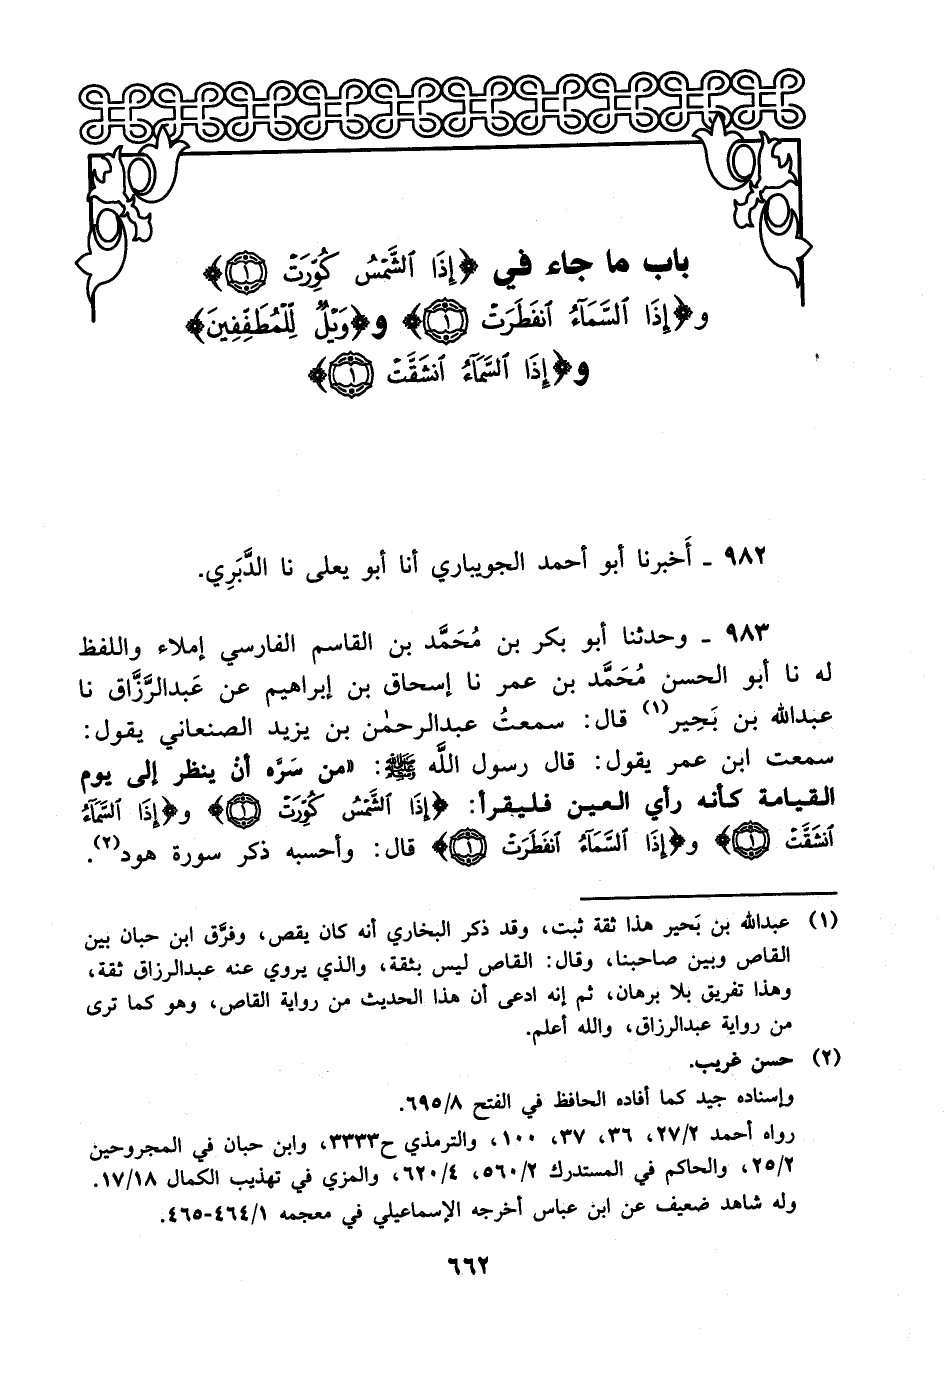 باب ما جاء في ﴿إِذَا ٱلشَّمْسُ كُوِّرَتْ ۝١﴾
و﴿إِذَا ٱلسَّمَآءُ ٱنفَطَرَتْ ۝١﴾ و﴿وَيْلٌ لِّلْمُطَفِّفِينَ﴾
و﴿إِذَا ٱلسَّمَآءُ ٱنشَقَّتْ ۝١﴾
٩٨٢ ـ أَخبرنا أبو أحمد الجويباري أنا أبو يعلى نا الدَّبَرِي.
٩٨٣ ـ وحدثنا أبو بكر بن مُحَمَّد بن القاسم الفارسي إملاء واللفظ
له نا أبو الحسن مُحَمَّد بن عمر نا إسحاق بن إبراهيم عن عَبدالرَّزَّاق نا
عبدالله بن بَحِير(١) قال: سمعتُ عبدالرحمٰن بن يزيد الصنعاني يقول:
سمعت ابن عمر يقول: قال رسول اللَّه ﷺ: «من سَرَّه أنْ ينظر إلى يوم
القيامة كأنه رأي العين فليقرأ: ﴿إِذَا ٱلشَّمْسُ كُوِّرَتْ ۝١﴾ و﴿إِذَا ٱلسَّمَآءُ
ٱنشَقَّتْ ۝١﴾ و﴿إِذَا ٱلسَّمَآءُ ٱنفَطَرَتْ ۝١﴾ قال: وأحسبه ذكر سورة هود(٢).
(١) عبدالله بن بَحير هذا ثقة ثبت، وقد ذكر البخاري أنه كان يقص، وفرَّق ابن حبان بين
القاص وبين صاحبنا، وقال: القاص ليس بثقة، والذي يروي عنه عبدالرزاق ثقة،
وهذا تفريق بلا برهان، ثم إنه ادعى أن هذا الحديث من رواية القاص، وهو كما ترى
من رواية عبدالرزاق، والله أعلم.
(٢) حسن غريب.
وإسناده جيد كما أفاده الحافظ في الفتح ٦٩٥/٨.
رواه أحمد ٢٧/٢، ٣٦، ٣٧، ١٠٠، والترمذي ح٣٣٣٣، وابن حبان في المجروحين
٢٥/٢، والحاكم في المستدرك ٥٦٠/٢، ٦٢٠/٤، والمزي في تهذيب الكمال ١٧/١٨.
وله شاهد ضعيف عن ابن عباس أخرجه الإسماعيلي في معجمه ٤٦٤/١-٤٦٥.
٦٦٢